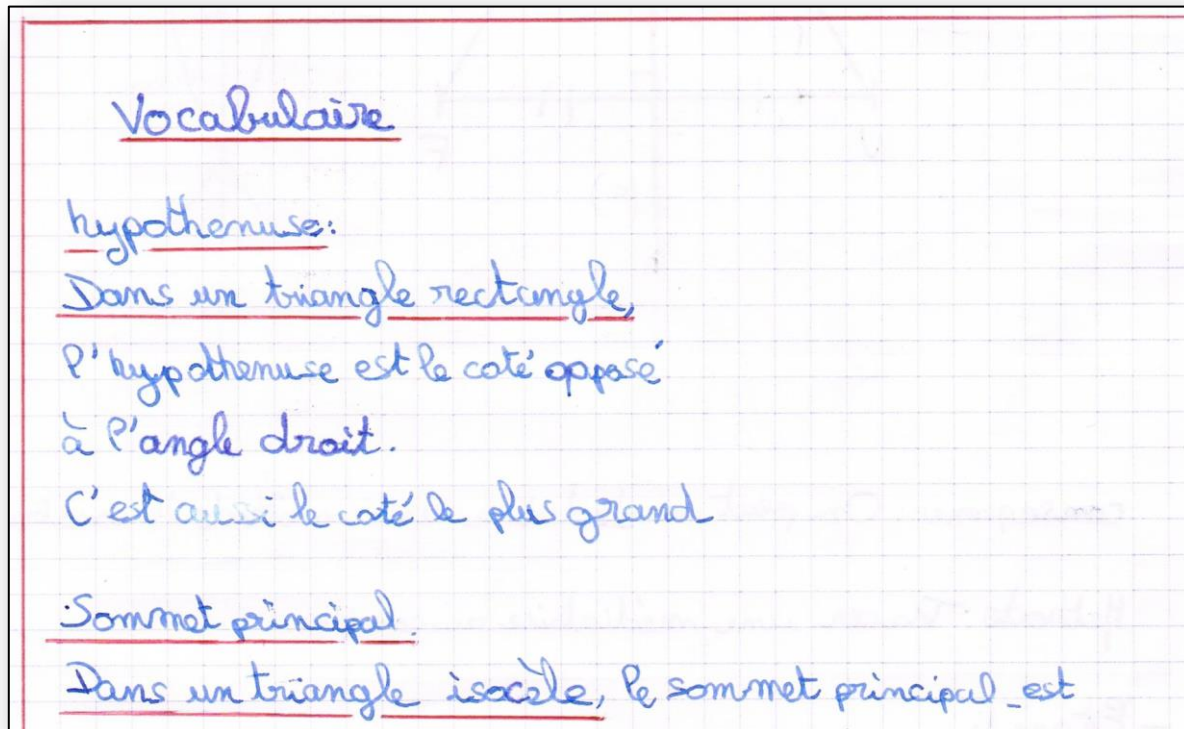 Vocabulaire
hypothenuse:
Dans un triangle rectangle,
l'hypothenuse est le coté opposé
à l'angle droit.
C'est aussi le coté le plus grand
Sommet principal.
Dans un triangle isocèle, le sommet principal est